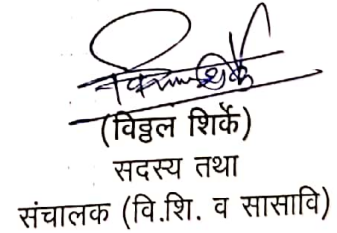 (विठ्ठल शिर्के)
सदस्य तथा
संचालक (वि.शि. व सासावि)